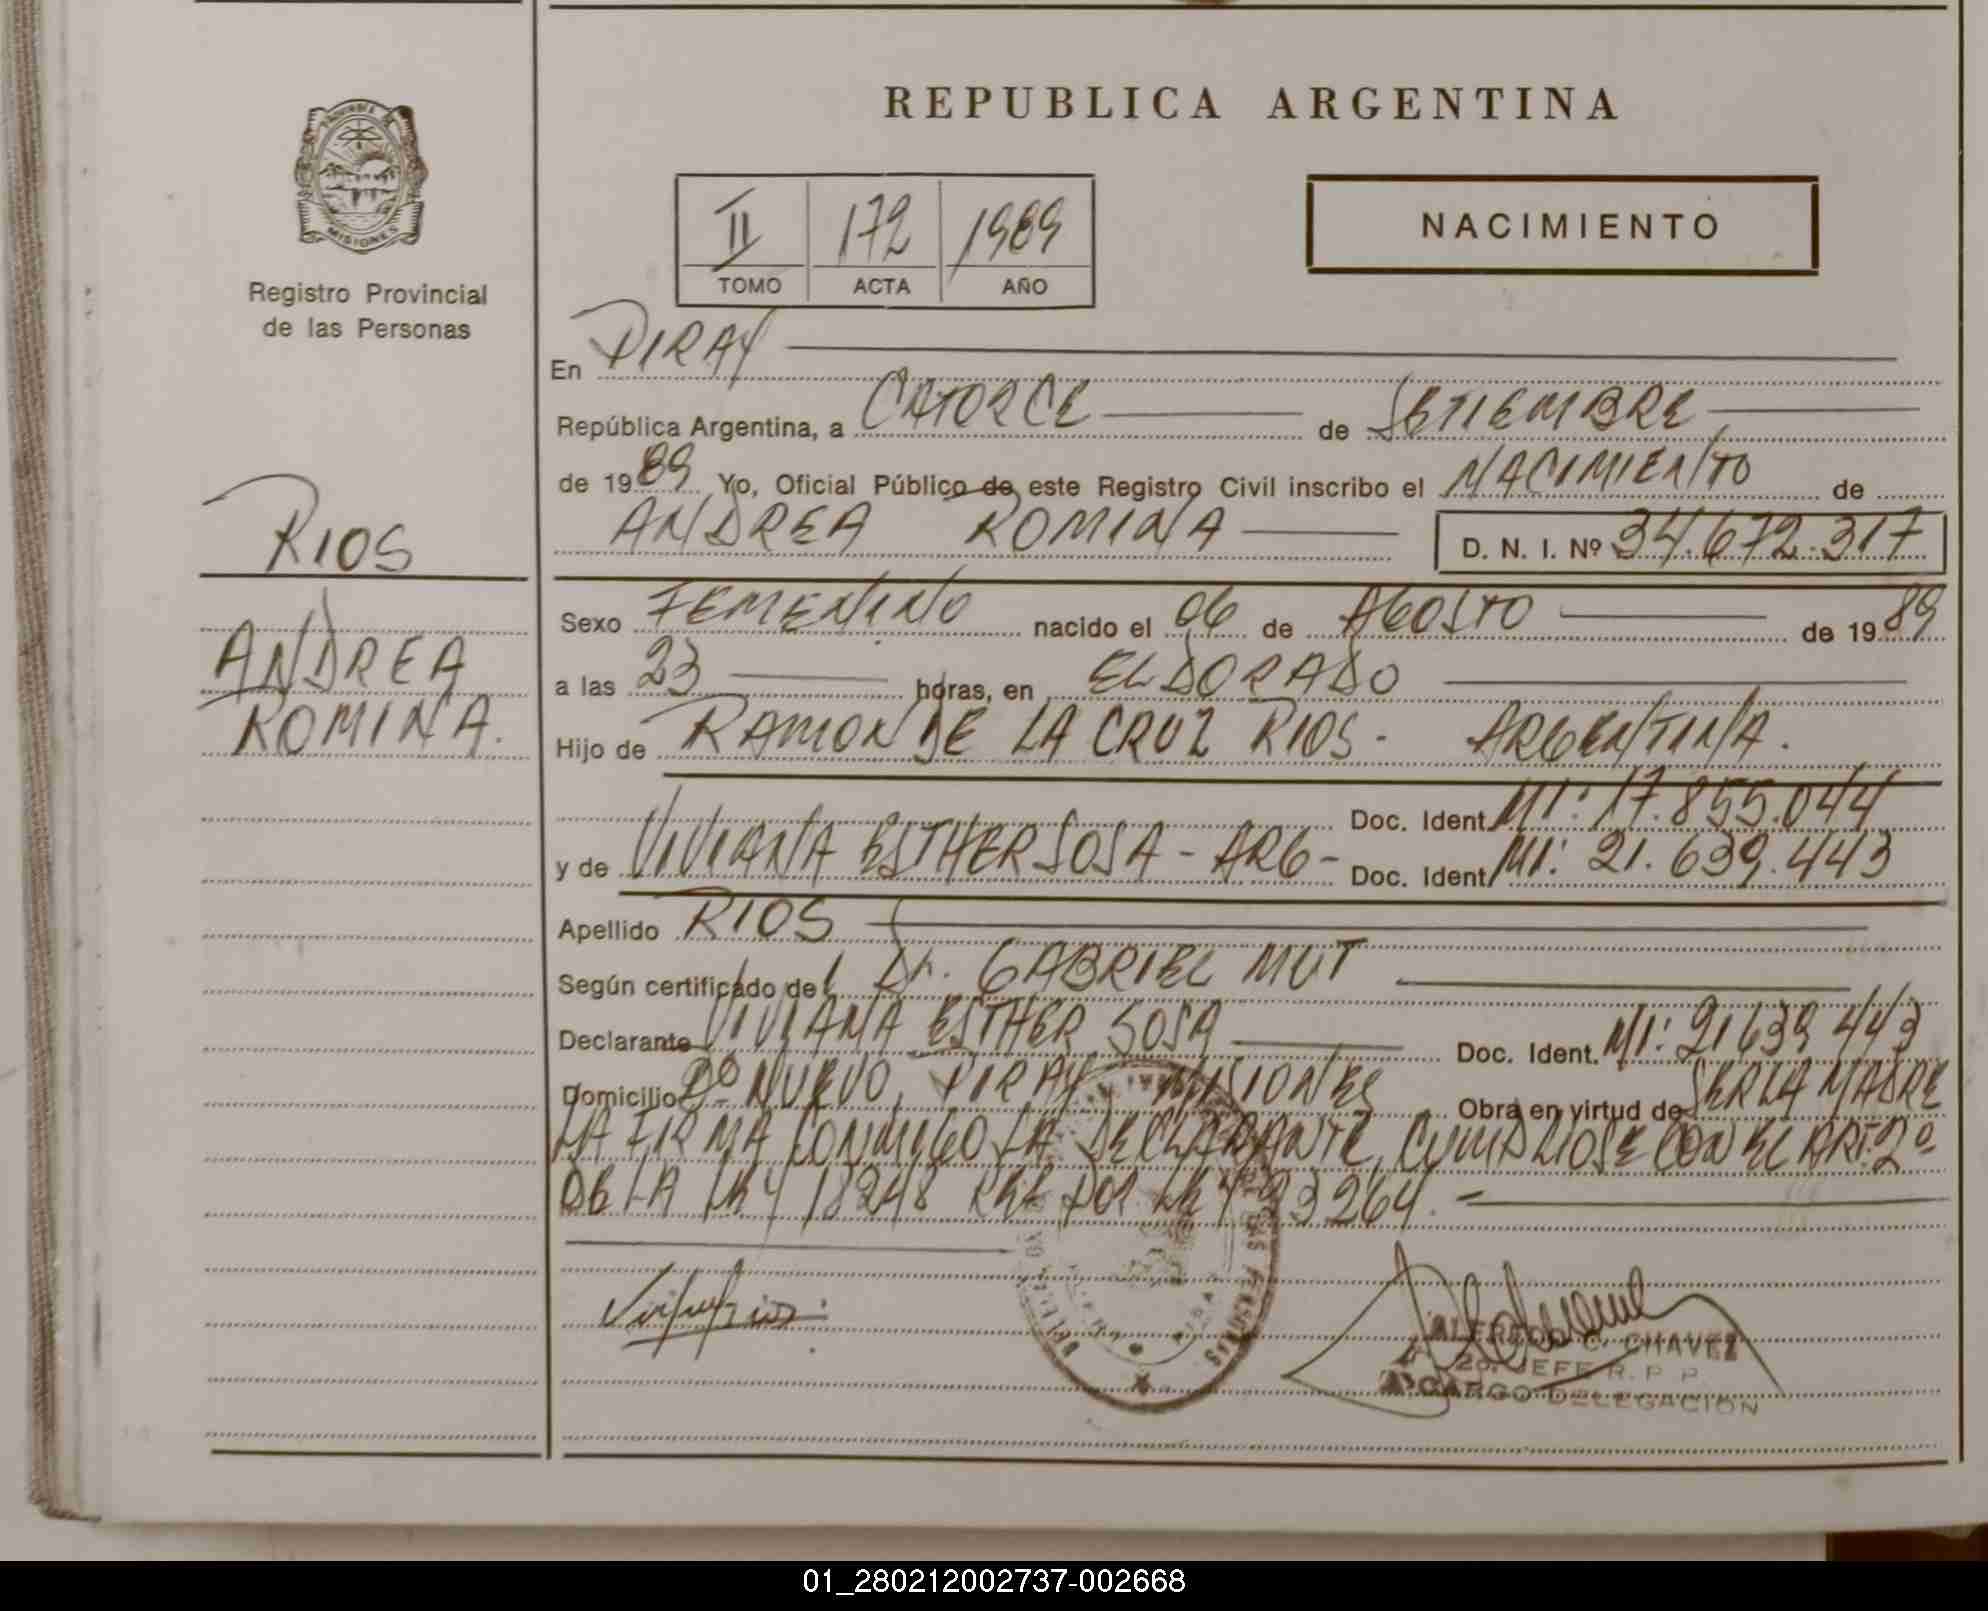 REPUBLICA ARGENTINA
MISIONES
Registro Provincial
de las Personas
II 172 1989
TOMO ACTA AÑO
NACIMIENTO
RIOS
ANDREA
ROMINA.
En PIRAY
República Argentina, a CATORCE de SETIEMBRE
de 1989 Yo, Oficial Público de este Registro Civil inscribo el NACIMIENTO de
ANDREA ROMINA D. N. I. Nº 34.672.317
Sexo FEMENINO nacido el 06 de AGOSTO de 1989
a las 23 horas, en ELDORADO
Hijo de RAMON DE LA CRUZ RIOS - ARGENTINA.
Doc. Ident. MI: 17.855.044
y de VIVIANA ESTHER SOSA - ARG - Doc. Ident. MI: 21.639.443
Apellido RIOS
Según certificado del Dr. GABRIEL MUT
Declarante VIVIANA ESTHER SOSA Doc. Ident. MI: 21639443
Domicilio Bº NUEVO, PIRAY MISIONES Obra en virtud de SER LA MADRE
LA FIRMA CONMIGO LA DECLARANTE, CUMPLIOSE CON EL ART. 2º
DE LA LEY 18248 POR LEY 23264.
ALFREDO C. CHAVEZ
2o. JEFE R. P. P.
A CARGO DELEGACION
01_280212002737-002668